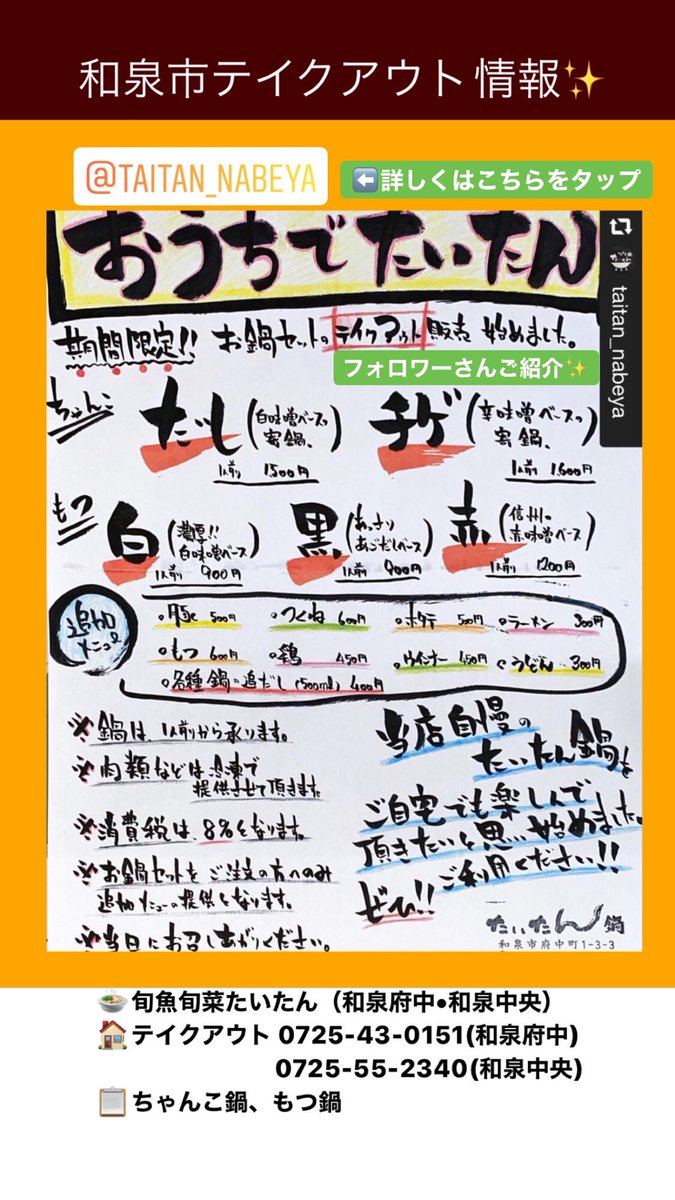 和泉市テイクアウト情報✨
@TAITAN_NABEYA
⬅️詳しくはこちらをタップ
おうちでたいたん
taitan_nabeya
期間限定!! お鍋セットのテイクアウト販売 始めました。
フォロワーさんご紹介✨
ちゃんこ
だし(白味噌ベースの寄鍋、)
1人前 1500円
チゲ(辛味噌ベースの寄鍋、)
1人前 1600円
もつ
白(濃厚!!白味噌ベース)
1人前 900円
黒(あっさりあごだしベース)
1人前 900円
赤(信州の赤味噌ベース)
1人前 1200円
追加メニュー
○豚 500円 ○つくね 600円 ○ホタテ 500円 ○ラーメン 300円
○もつ 600円 ○鶏 450円 ○ウインナー 450円 ○うどん 300円
○各種鍋の追だし(500ml) 400円
※鍋は、1人前から承ります。
※肉類などは冷凍で
提供させて頂きます
※消費税は、8%となります。
※お鍋セットをご注文の方へのみ
追加メニューの提供となります。
※当日にお召しあがりください。
当店自慢の
たいたん鍋を
ご自宅でも楽しんで
頂きたいと思い始めました。
ぜひ!!ご利用ください!!
たいたん鍋
和泉市府中町1-3-3
🍲旬魚旬菜たいたん（和泉府中•和泉中央）
🏠テイクアウト 0725-43-0151(和泉府中)
0725-55-2340(和泉中央)
📋ちゃんこ鍋、もつ鍋